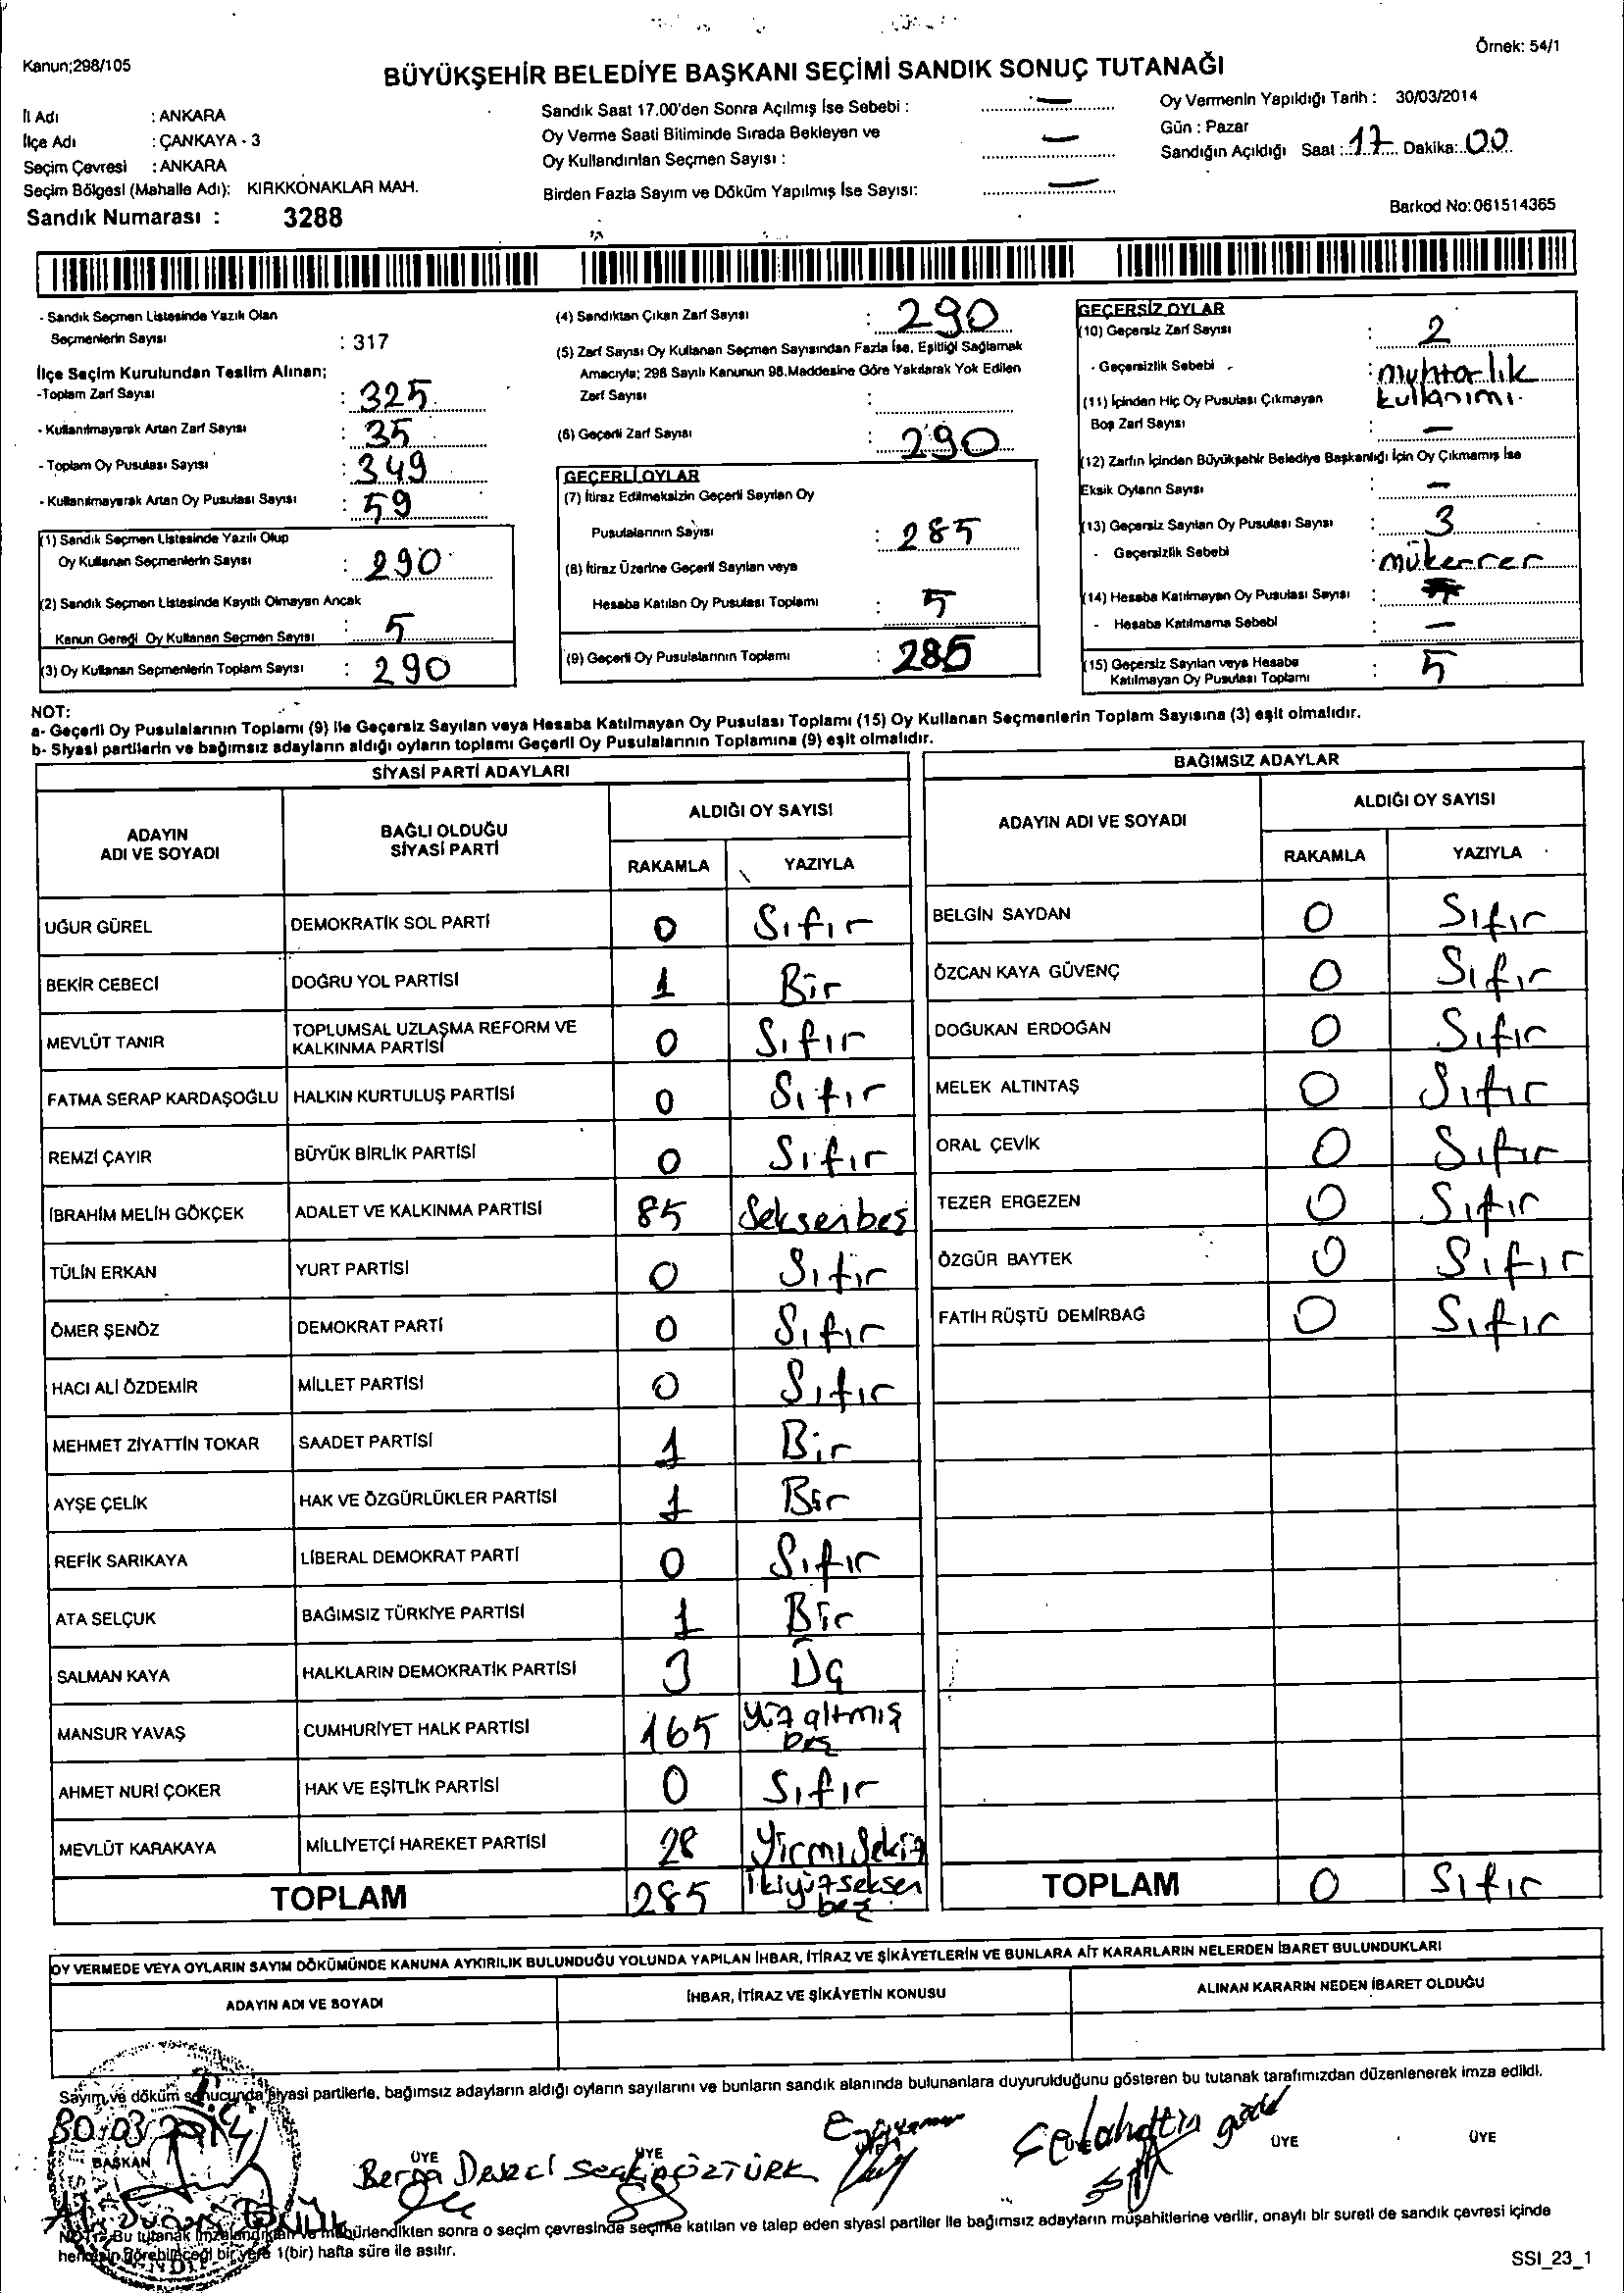 Örnek: 54/1
Kanun;298/105
BÜYÜKŞEHİR BELEDİYE BAŞKANI SEÇİMİ SANDIK SONUÇ TUTANAĞI
İl Adı : ANKARA
İlçe Adı : ÇANKAYA - 3
Seçim Çevresi : ANKARA
Seçim Bölgesi (Mahalle Adı): KIRKKONAKLAR MAH.
Sandık Numarası : 3288
Sandık Saat 17.00'den Sonra Açılmış İse Sebebi : —
Oy Verme Saati Bitiminde Sırada Bekleyen ve
Oy Kullandırılan Seçmen Sayısı : —
Birden Fazla Sayım ve Döküm Yapılmış İse Sayısı: —
Oy Vermenin Yapıldığı Tarih : 30/03/2014
Gün : Pazar
Sandığın Açıldığı Saat : 17 Dakika: 00
Barkod No:061514365
- Sandık Seçmen Listesinde Yazılı Olan
Seçmenlerin Sayısı : 317
İlçe Seçim Kurulundan Teslim Alınan;
-Toplam Zarf Sayısı : 325
- Kullanılmayarak Artan Zarf Sayısı : 35
- Toplam Oy Pusulası Sayısı : 349
- Kullanılmayarak Artan Oy Pusulası Sayısı : 59
(1) Sandık Seçmen Listesinde Yazılı Olup
Oy Kullanan Seçmenlerin Sayısı : 290
(2) Sandık Seçmen Listesinde Kayıtlı Olmayan Ancak
Kanun Gereği Oy Kullanan Seçmen Sayısı : 5
(3) Oy Kullanan Seçmenlerin Toplam Sayısı : 290
(4) Sandıktan Çıkan Zarf Sayısı : 290
(5) Zarf Sayısı Oy Kullanan Seçmen Sayısından Fazla İse, Eşitliği Sağlamak
Amacıyla; 298 Sayılı Kanunun 98.Maddesine Göre Yakılarak Yok Edilen
Zarf Sayısı :
(6) Geçerli Zarf Sayısı : 290
GEÇERLİ OYLAR
(7) İtiraz Edilmeksizin Geçerli Sayılan Oy
Pusulalarının Sayısı : 285
(8) İtiraz Üzerine Geçerli Sayılan veya
Hesaba Katılan Oy Pusulası Toplamı : 5
(9) Geçerli Oy Pusulalarının Toplamı : 285
GEÇERSİZ OYLAR
(10) Geçersiz Zarf Sayısı : 2
- Geçersizlik Sebebi : muhtarlık
kullanımı.
(11) İçinden Hiç Oy Pusulası Çıkmayan
Boş Zarf Sayısı : —
(12) Zarfın İçinden Büyükşehir Belediye Başkanlığı İçin Oy Çıkmamış İse
Eksik Oyların Sayısı : —
(13) Geçersiz Sayılan Oy Pusulası Sayısı : 3
- Geçersizlik Sebebi : mükerrer
(14) Hesaba Katılmayan Oy Pusulası Sayısı :
- Hesaba Katılmama Sebebi : —
(15) Geçersiz Sayılan veya Hesaba
Katılmayan Oy Pusulası Toplamı : 5
NOT:
a- Geçerli Oy Pusulalarının Toplamı (9) ile Geçersiz Sayılan veya Hesaba Katılmayan Oy Pusulası Toplamı (15) Oy Kullanan Seçmenlerin Toplam Sayısına (3) eşit olmalıdır.
b- Siyasi partilerin ve bağımsız adayların aldığı oyların toplamı Geçerli Oy Pusulalarının Toplamına (9) eşit olmalıdır.
SİYASİ PARTİ ADAYLARI
ADAYIN
ADI VE SOYADI
BAĞLI OLDUĞU
SİYASİ PARTİ
ALDIĞI OY SAYISI
RAKAMLA YAZIYLA
UĞUR GÜREL DEMOKRATİK SOL PARTİ 0 Sıfır
BEKİR CEBECİ DOĞRU YOL PARTİSİ 1 Bir
MEVLÜT TANIR TOPLUMSAL UZLAŞMA REFORM VE
KALKINMA PARTİSİ 0 Sıfır
FATMA SERAP KARDAŞOĞLU HALKIN KURTULUŞ PARTİSİ 0 Sıfır
REMZİ ÇAYIR BÜYÜK BİRLİK PARTİSİ 0 Sıfır
İBRAHİM MELİH GÖKÇEK ADALET VE KALKINMA PARTİSİ 85 Seksenbeş
TÜLİN ERKAN YURT PARTİSİ 0 Sıfır
ÖMER ŞENÖZ DEMOKRAT PARTİ 0 Sıfır
HACI ALİ ÖZDEMİR MİLLET PARTİSİ 0 Sıfır
MEHMET ZİYATTİN TOKAR SAADET PARTİSİ 1 Bir
AYŞE ÇELİK HAK VE ÖZGÜRLÜKLER PARTİSİ 1 Bir
REFİK SARIKAYA LİBERAL DEMOKRAT PARTİ 0 Sıfır
ATA SELÇUK BAĞIMSIZ TÜRKİYE PARTİSİ 1 Bir
SALMAN KAYA HALKLARIN DEMOKRATİK PARTİSİ 3 Üç
MANSUR YAVAŞ CUMHURİYET HALK PARTİSİ 165 Yüz altmış
beş
AHMET NURİ ÇOKER HAK VE EŞİTLİK PARTİSİ 0 Sıfır
MEVLÜT KARAKAYA MİLLİYETÇİ HAREKET PARTİSİ 28 Yirmi Sekiz
TOPLAM 285 İkiyüzseksen
beş
BAĞIMSIZ ADAYLAR
ADAYIN ADI VE SOYADI
ALDIĞI OY SAYISI
RAKAMLA YAZIYLA
BELGİN SAYDAN 0 Sıfır
ÖZCAN KAYA GÜVENÇ 0 Sıfır
DOĞUKAN ERDOĞAN 0 Sıfır
MELEK ALTINTAŞ 0 Sıfır
ORAL ÇEVİK 0 Sıfır
TEZER ERGEZEN 0 Sıfır
ÖZGÜR BAYTEK 0 Sıfır
FATİH RÜŞTÜ DEMİRBAĞ 0 Sıfır
TOPLAM 0 Sıfır
OY VERMEDE VEYA OYLARIN SAYIM DÖKÜMÜNDE KANUNA AYKIRILIK BULUNDUĞU YOLUNDA YAPILAN İHBAR, İTİRAZ VE ŞİKÂYETLERİN VE BUNLARA AİT KARARLARIN NELERDEN İBARET BULUNDUKLARI
ADAYIN ADI VE SOYADI İHBAR, İTİRAZ VE ŞİKÂYETİN KONUSU ALINAN KARARIN NEDEN İBARET OLDUĞU
Sayım ve döküm sonucunda siyasi partilerle, bağımsız adayların aldığı oyların sayılarını ve bunların sandık alanında bulunanlara duyurulduğunu gösteren bu tutanak tarafımızdan düzenlenerek imza edildi.
30.03.2014
BAŞKAN ÜYE ÜYE ÜYE ÜYE ÜYE ÜYE
Seçkin ÖZTÜRK Selahattin
NOT: Bu tutanak imzalandıktan ve mühürlendikten sonra o seçim çevresinde seçime katılan ve talep eden siyasi partiler ile bağımsız adayların müşahitlerine verilir, onaylı bir sureti de sandık çevresi içinde
herkesin görebileceği bir yere 1(bir) hafta süre ile asılır.
SSI_23_1